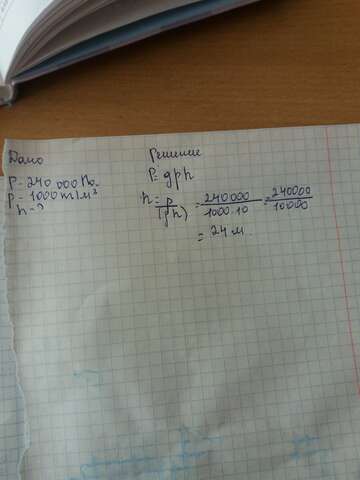 Дано
P - 240 000 Па.
p - 1000 m/м³
h - ?
Решение
P = gph
h = P/(gh) = 240000/1000·10 = 240000/10000
= 24 м.